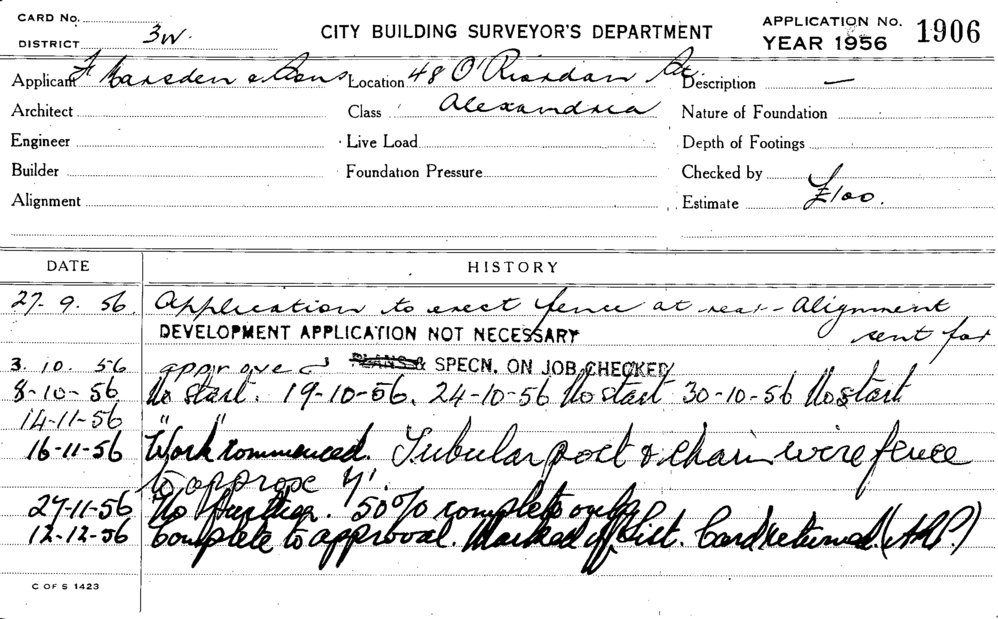 CARD No.
DISTRICT 3W.
CITY BUILDING SURVEYOR'S DEPARTMENT
APPLICATION No. 1906
YEAR 1956
Applicant F Marsden & Sons Location 48 O'Riordan St. Description —
Architect Class Alexandria Nature of Foundation
Engineer Live Load Depth of Footings
Builder Foundation Pressure Checked by
Alignment Estimate £100.
DATE HISTORY
27. 9. 56. Application to erect fence at rear - Alignment
DEVELOPMENT APPLICATION NOT NECESSARY sent for
3. 10. 56 approved PLANS & SPECN. ON JOB CHECKED
8-10-56 No start. 19-10-56. 24-10-56 No start 30-10-56 No start
14-11-56 " "
16-11-56 Work commenced. Tubular post & chain wire fence
to approx 7'.
27-11-56 No further. 50% complete only
12-12-56 Complete to approval. Marked off list. Card returned.
C OF S 1423